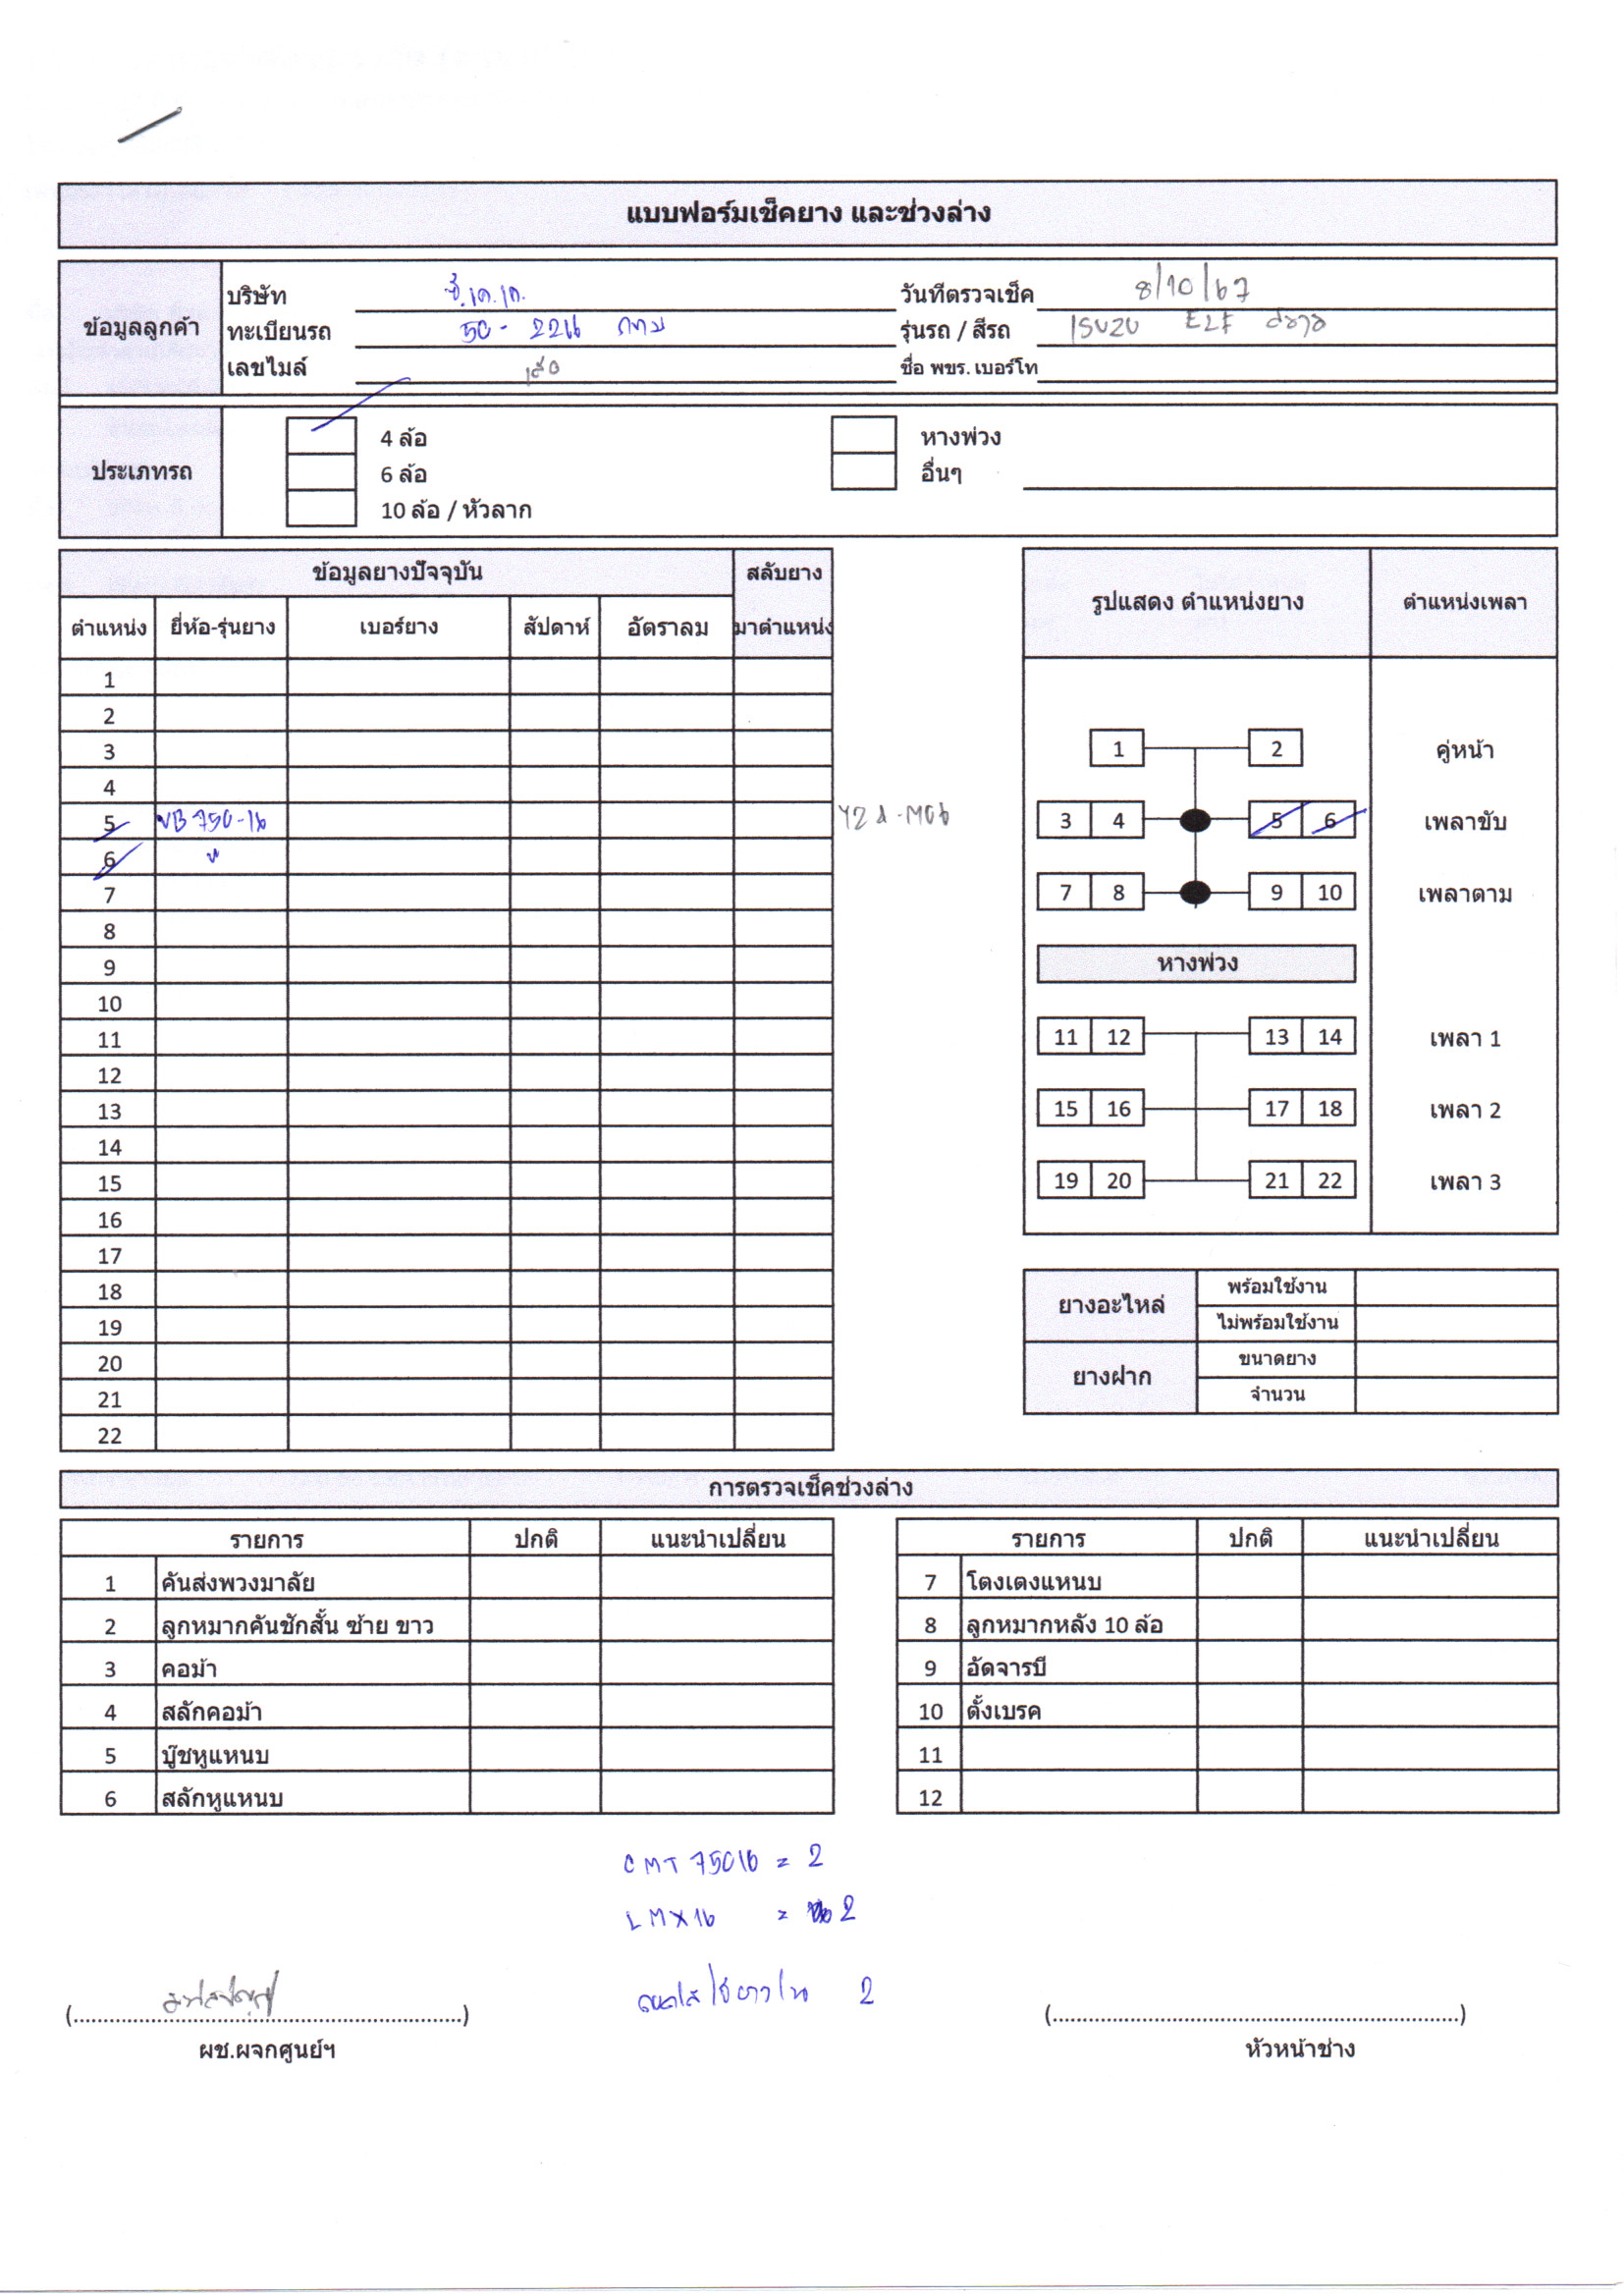 แบบฟอร์มเช็คยาง และช่วงล่าง
ข้อมูลลูกค้า
บริษัท
วันที่ตรวจเช็ค 8/10/67
ทะเบียนรถ 50-2216 กทม
รุ่นรถ / สีรถ ISUZU ELF
เลขไมล์
ชื่อ พขร. เบอร์โท
ประเภทรถ
4 ล้อ
หางพ่วง
6 ล้อ
อื่นๆ
10 ล้อ / หัวลาก
ข้อมูลยางปัจจุบัน สลับยาง
ตำแหน่ง ยี่ห้อ-รุ่นยาง เบอร์ยาง สัปดาห์ อัตราลม มาตำแหน่ง
1
2
3
4
5 VB 750-16
6 "
7
8
9
10
11
12
13
14
15
16
17
18
19
20
21
22
รูปแสดง ตำแหน่งยาง ตำแหน่งเพลา
1 2 คู่หน้า
3 4 5 6 เพลาขับ
7 8 9 10 เพลาตาม
หางพ่วง
11 12 13 14 เพลา 1
15 16 17 18 เพลา 2
19 20 21 22 เพลา 3
ยางอะไหล่ พร้อมใช้งาน
ไม่พร้อมใช้งาน
ยางฝาก ขนาดยาง
จำนวน
การตรวจเช็คช่วงล่าง
รายการ ปกติ แนะนำเปลี่ยน
1 คันส่งพวงมาลัย
2 ลูกหมากคันชักสั้น ซ้าย ขาว
3 คอม้า
4 สลักคอม้า
5 บู๊ชหูแหนบ
6 สลักหูแหนบ
รายการ ปกติ แนะนำเปลี่ยน
7 โตงเตงแหนบ
8 ลูกหมากหลัง 10 ล้อ
9 อัดจารบี
10 ตั้งเบรค
11
12
CMT 75016 = 2
LMX16 = 2
2
(..........)
ผช.ผจกศูนย์ฯ
(..........)
หัวหน้าช่าง